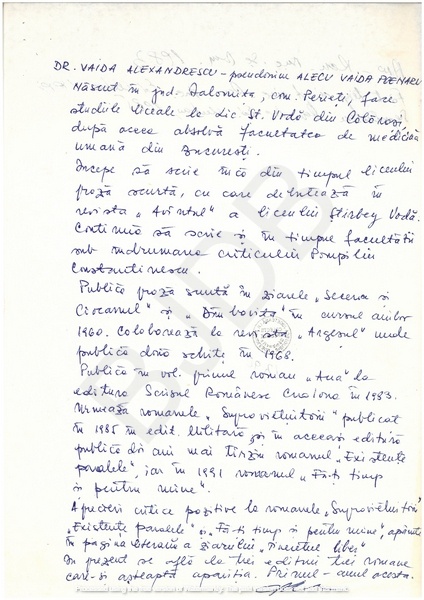 DR. VAIDA ALEXANDRESCU – pseudonim ALECU VAIDA POENARU
Născut în jud. Ialomița, com. Perieți, face
studiile liceale la Lic. Șt. Vodă din Călărași,
după aceea absolvă facultatea de medicină
umană din București.
Începe să scrie încă din timpul liceului
proză scurtă, cu care debutează în
revista „Avîntul" a liceului Știrbey Vodă.
Continuă să scrie și în timpul facultății
sub îndrumarea criticului Pompiliu
Constantinescu.
Publică proză scurtă în ziarele „Secera și
Ciocanul" și „Dîmbovița" în cursul anilor
1960. Colaborează la revista „Argeșul" unde
publică două schițe în 1968.
Publică în vol. primul roman „Ana" la
editura Scrisul Românesc Craiova în 1983.
Urmează romanele „Supraviețuitorii" publicat
în 1985 în edit. Militară și în aceeași editură
publică doi ani mai tîrziu romanul „Existențe
paralele", iar în 1991 romanul „Fă-ți timp
și pentru mine".
Aprecieri critice pozitive la romanele „Supraviețuitorii"
„Existențe paralele" și „Fă-ți timp și pentru mine", apărute
în pagina literară a ziarului „Tineretul liber".
În prezent se află la trei edituri trei romane
care-și așteaptă apariția. Primul - anul acesta.
BJDB